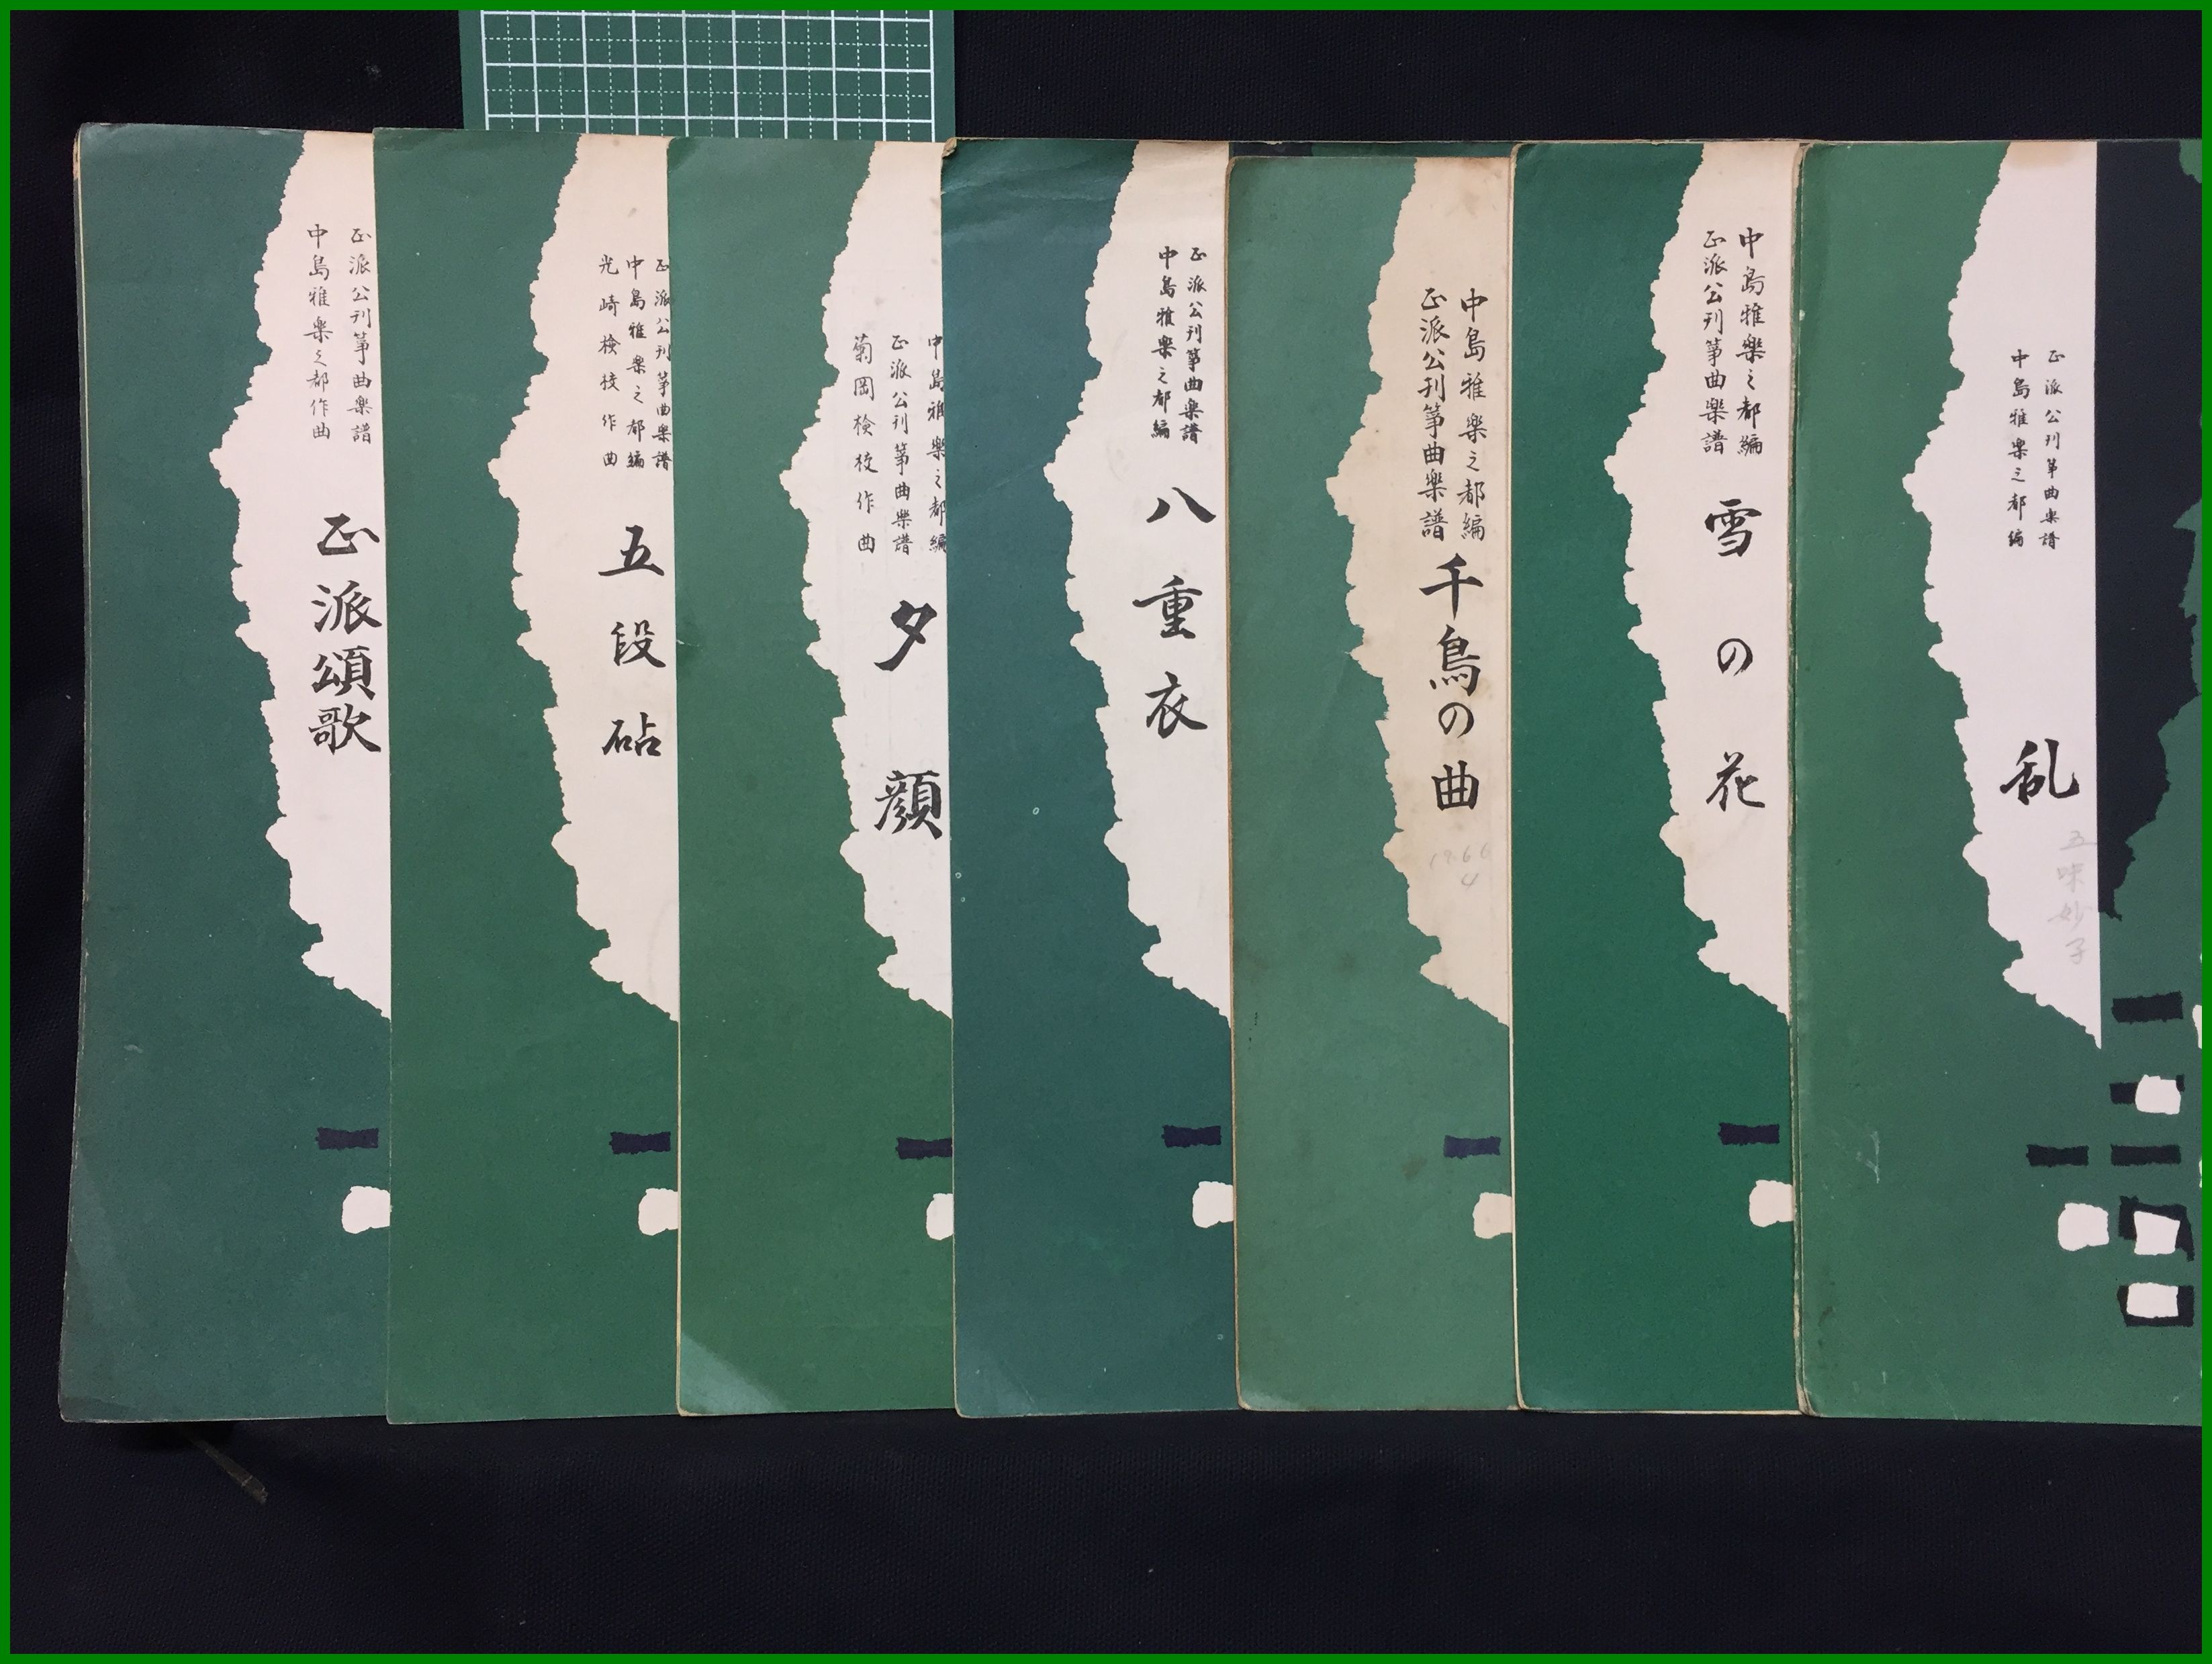 正派公刊箏曲楽譜
中島雅楽之都作曲
正派頌歌
正派公刊箏曲楽譜
中島雅楽之都編
光崎検校作曲
五段砧
中島雅楽之都編
正派公刊箏曲楽譜
菊岡検校作曲
夕顔
正派公刊箏曲楽譜
中島雅楽之都編
八重衣
中島雅楽之都編
正派公刊箏曲楽譜
千鳥の曲
1966
4
中島雅楽之都編
正派公刊箏曲楽譜
雪の花
正派公刊箏曲楽譜
中島雅楽之都編
乱
五味妙子